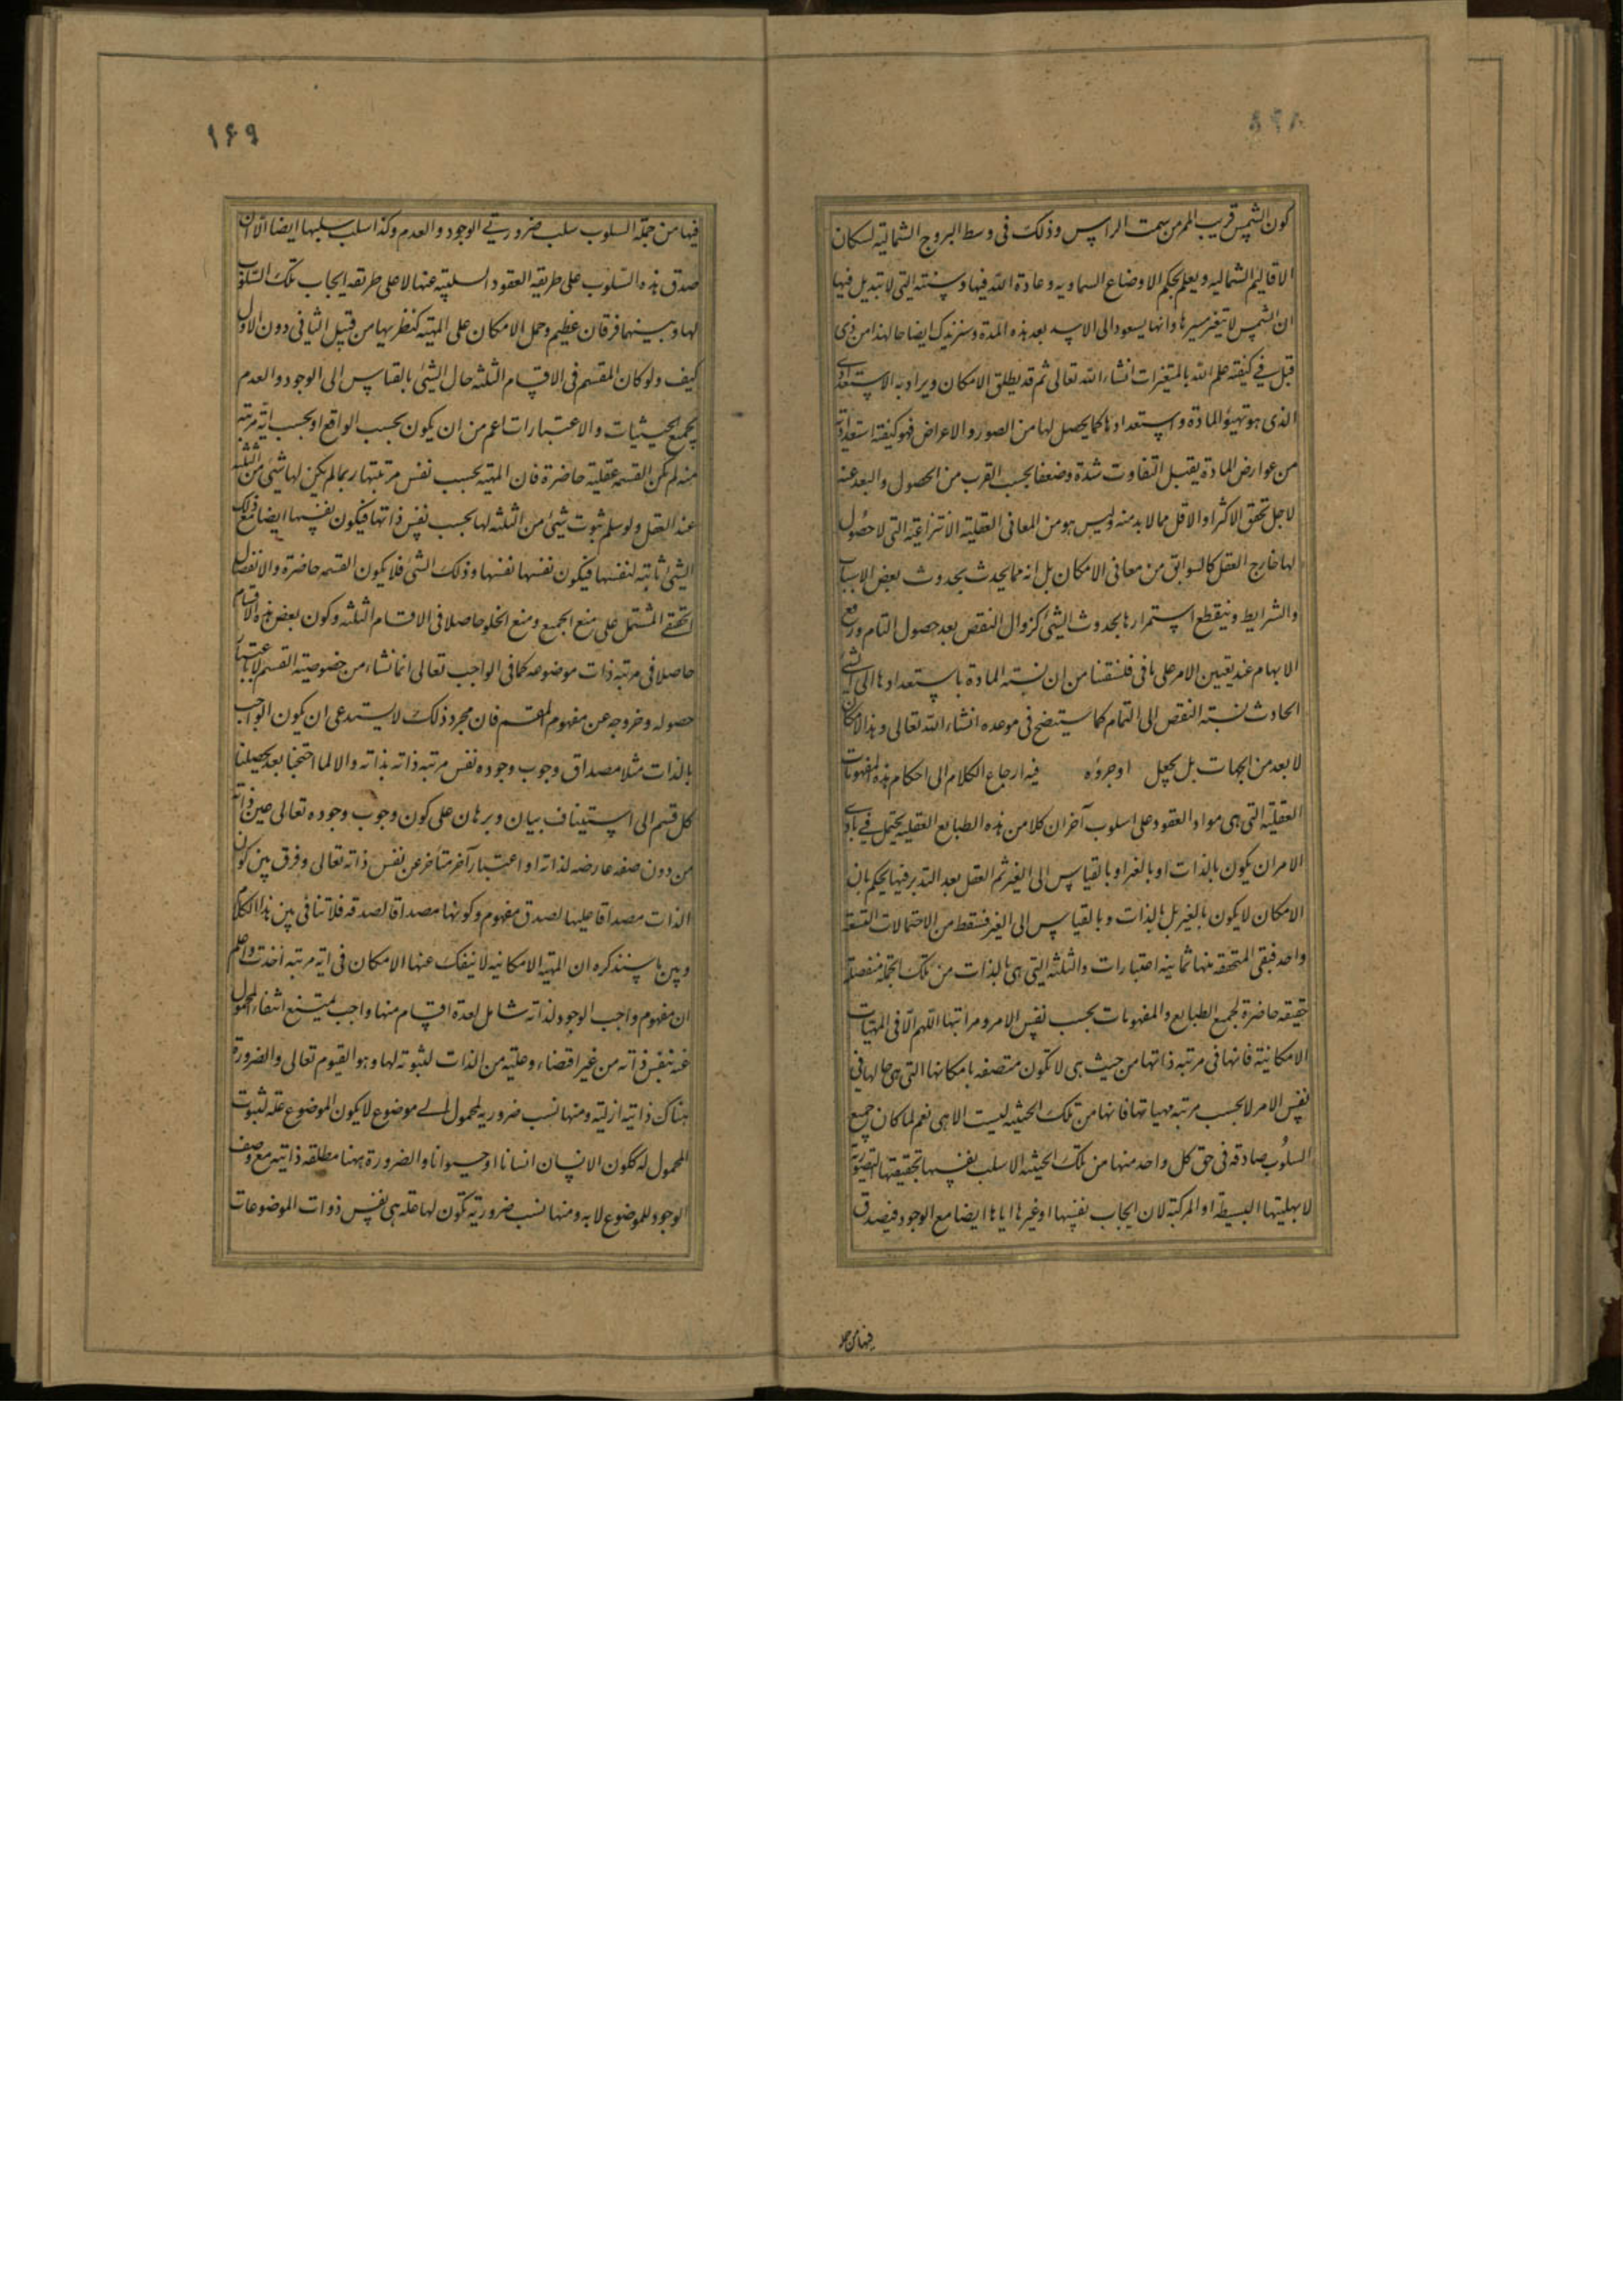 كون الشمس قريب الممر من سمت الراس وذلك فى وسط البروج الشمالية لسكان
الاقاليم الشماليه ويعلم بحكم الاوضاع السماويه وعادة الله فيها وسنته التى لا تبديل فيها
ان الشمس لا يتغير مسيرها وانها يسعود الى الاسد بعد هذه المدة وسنزيدك ايضاحا لهذا من ذى
قبل فى كيفيته علم الله بالمتغيرات انشاء الله تعالى ثم قد يطلق الامكان ويراد به الاستعدادى
الذى هو تهيؤ المادة واستعدادها كما يحصل لها من الصور والاعراض فهو كيفيته استعدادية
من عوارض المادة يقبل التفاوت شدة وضعفا بحسب القرب من الحصول والبعد عنه
لاجل تحقق الاكثر او الاقل مما لابد منه وليس هو من المعانى العقلية الانتزاعية التى لا حصول
لها خارج العقل كالسوابق من معانى الامكان بل انه مما يحدث بحدوث بعض الاسباب
والشرايط وينقطع استمرارها بحدوث الشئ كزوال النقص بعد حصول التام ورفع
الابهام عند تعيين الامر على ما فى فلسفتنا من ان نسبته المادة باستعدادها الى الشئ
الحادث نسبته النقص الى التمام كما سيتضح فى موعده انشاء الله تعالى وهذا الامكان
لا بعد من الجهات بل يجعل او جروه فيه ارجاع الكلام الى احكام هذه المفهومات
العقلية التى هى مواد العقود على اسلوب آخر ان كلا من هذه الطبايع العقليه يحتمل فى بادى
الامر ان يكون بالذات او بالغير او بالقياس الى الغير ثم العقل بعد التدبر فيها يحكم بان
الامكان لا يكون بالغير بل بالذات وبالقياس الى الغير فسقط من الاحتمالات التسعة
واحد فبقى المتحققه منها ثمانيه اعتبارات والثلثه التى هى بالذات من تلك الجملة منفصلة
حقيقه حاضرة لجميع الطبايع والمفهومات بحسب نفس الامر ومراتبها اللهم الا فى المهيات
الامكانية فانها فى مرتبه ذاتها من حيث هى لا تكون متصفه بامكانها التى هى حالها فى
نفس الامر لا بحسب مرتبه مهياتها فانها من تلك الحيثيه ليست الا هى نعم لما كان جميع
السلوب صادقه فى حق كل واحد منها من تلك الحيثيه الا سلب نفسها بحقيقتها التصورية
لا بهليتها البسيطه او المركبة لان ايجاب نفسها او غيرها اياها ايضا مع الوجود فيصدق
فيها من جملة
۱۶۹
فيها من جملة السلوب سلب ضرورتى الوجود والعدم وكذا سلب سلبها ايضا الا ان
صدق هذه السلوب على طريقه العقود السلبيته عنها لا على طريقه ايجاب تلك السلوب
لها وبينهما فرقان عظيم وحمل الامكان على المهيته كنظريها من قبيل الثانى دون الاول
كيف ولو كان المقسم فى الاقسام الثلثه حال الشئ بالقياس الى الوجود والعدم
بجميع الحيثيات والاعتبارات اعم من ان يكون بحسب الواقع او بحسب اية مرتبه
منه لم تكن القسمه عقلية حاضرة فان المهيه بحسب نفس مرتبتها ربما لم يكن لها شئ من الثلثه
عند العقل ولو سلم ثبوت شئ من الثلثه لها بحسب نفس ذاتها فيكون نفسها ايضا مع ذلك
الشئ ثابته لنفسها فيكون نفسها نفسها وذلك الشئ فلا يكون القسمه حاضرة والانفصال
الحقيقى المشتمل على منع الجمع ومنع الخلو حاصلا فى الاقسام الثلثه وكون بعض هذه الاقسام
حاصلا فى مرتبه ذات موضوعه كما فى الواجب تعالى انما نشاء من خصوصيته القسم لا باعتبار
حصوله وخروجه عن مفهوم المقسم فان مجرد ذلك لا يستدعى ان يكون الواجب
بالذات مثلا مصداق وجوب وجوده نفس مرتبه ذاته بذاته والا لما احتجنا بعد تحصيلنا
كل قسم الى استيناف بيان وبرهان على كون وجوب وجوده تعالى عين ذاته
من دون صفه عارضه لذاته او اعتبار آخر متاخر عن نفس ذاته تعالى وفرق بين كون
الذات مصداقا عليها لصدق مفهوم وكونها مصداقا لصدقه فلا تنافى بين هذا الكلام
وبين ما سنذكره ان المهيه الامكانيه لا ينفك عنها الامكان فى ايه مرتبه اخذت واعلم
ان مفهوم واجب الوجود لذاته شامل لعدة اقسام منها واجب يمتنع انتفاء المحمول
عنه بنفس ذاته من غير اقتضاء وعليته من الذات لثبوته لها وهو القيوم تعالى والضرورة
هناك ذاتيه ازلية ومنها نسب ضروريه لمحمول الى موضوع لا يكون الموضوع علة لثبوت
المحمول له ككون الانسان انسانا او حيوانا والضرورة ههنا مطلقه ذاتيه مع وصف
الوجود للموضوع لا به ومنها نسب ضرورية تكون لها علة هى نفس ذوات الموضوعات